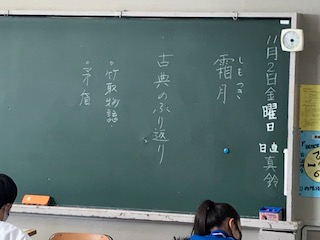 11月2日金曜日
日直 真鈴
しもつき
霜月
古典のふり返り
・竹取物語
・矛盾